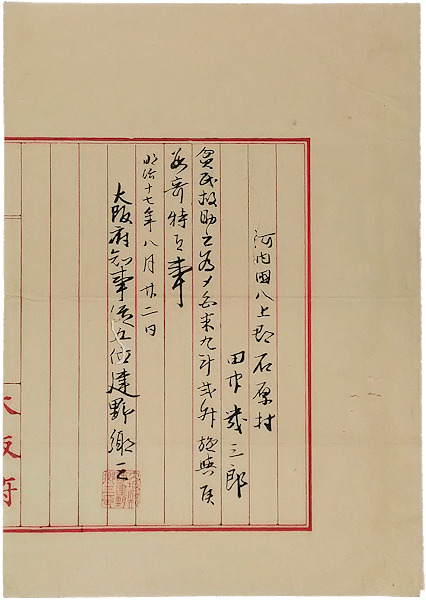 河内国八上郡石原村
田中幾三郎
貧民救助之為メ白米九斗弐升施与候
段奇特之事
明治十七年八月廿二日
大阪府知事従五位建野郷三
大阪府